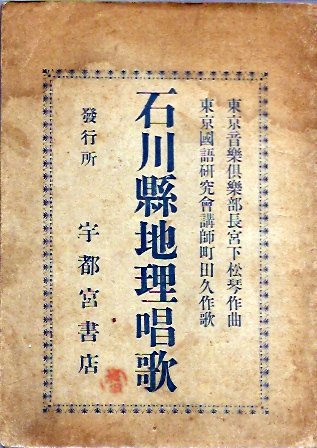 東京音樂俱樂部長宮下松琴作曲
東京國語研究會講師町田久作歌
石川縣地理唱歌
發行所　宇都宮書店